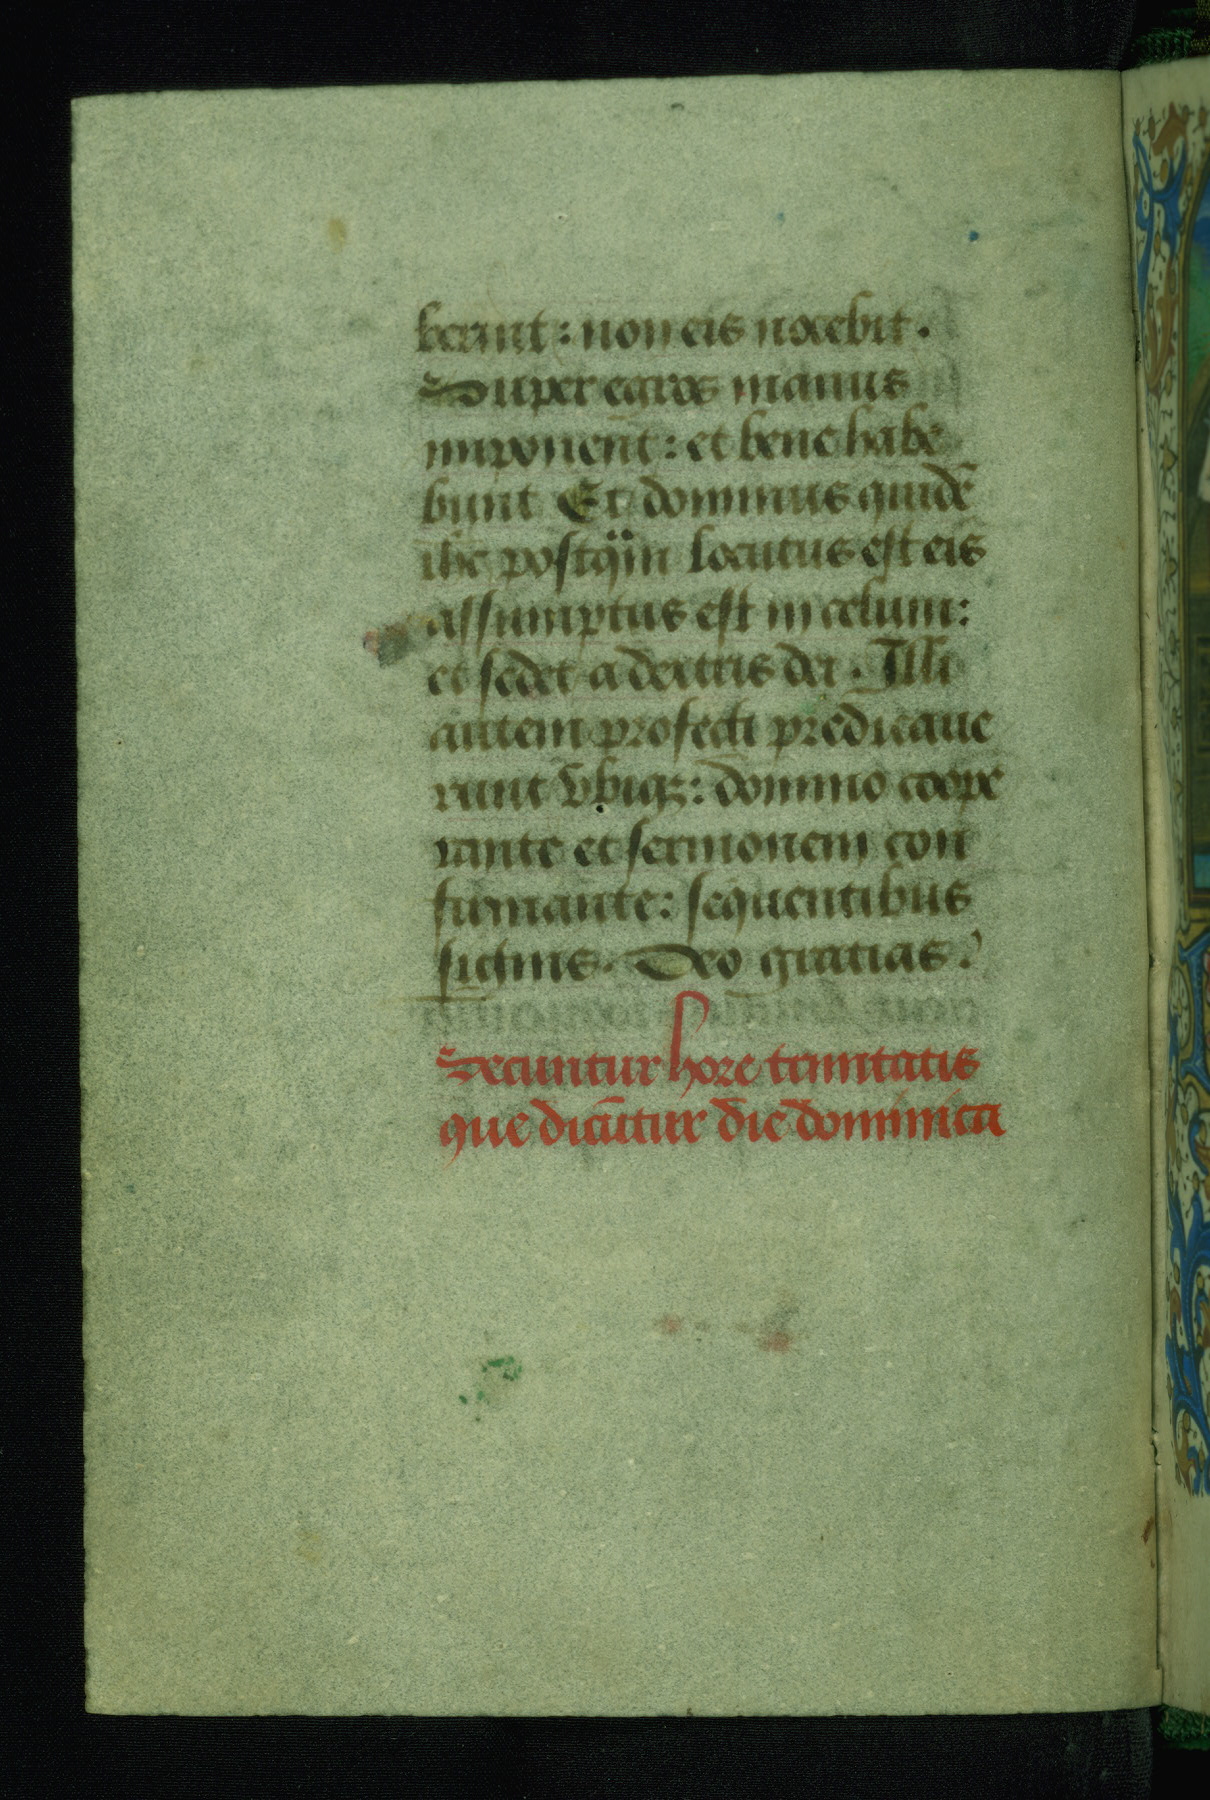 berint: non eis nocebit.
Super egros manus
imponent: et bene habe
bunt Et dominus quidē
ihc postq̄m locutus est eis
assumptus est in celum:
et sedet a dextris dei. Illi
autem profecti predicaue
runt vbiqz: domino coope
rante et sermonem con
firmante: sequentibus
signis. Deo gratias.
Secuntur hore trinitatis
que dicūtur die dominica